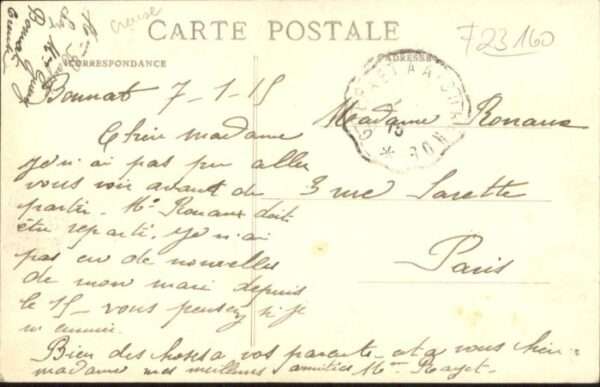 Creuse
CARTE POSTALE
F23160
CORRESPONDANCE
ADRESSE
Bonnat 7-1-15
Chère madame
Je n'ai pas pu aller
vous voir avant de
partir. Mr Ronaux doit
être reparti. Je n'ai
pas eu de nouvelles
de mon mari depuis
le 15 - vous pensez si je
m'ennuie.
Bien des choses a vos parents et a vous chère
madame mes meilleures amitiés Mme
Madame Ronaux
3 rue Sarette
Paris
Bonnat
Creuse